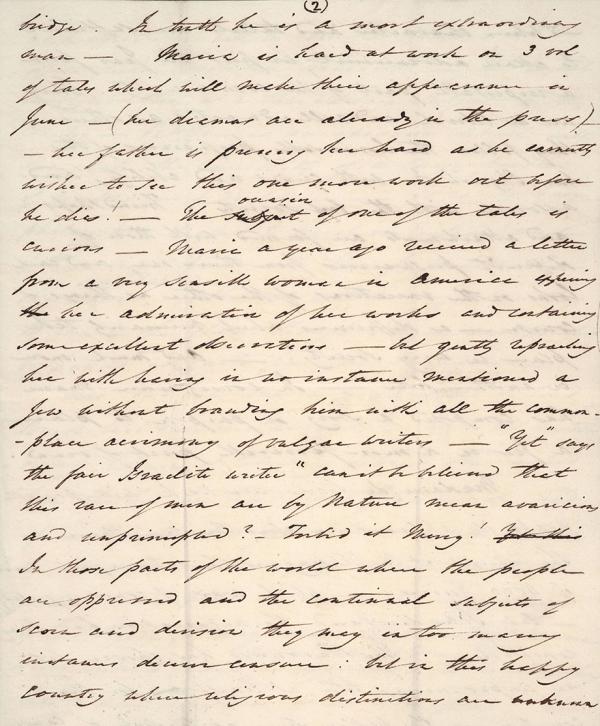 (2)
bridge. In truth he is a most extraordinary
man — Maria is hard at work on 3 vol
of tales which will make their appearance in
June — (her dramas are already in the press) —
— her father is pressing her hard as he earnestly
wishes to see this one more work out before
he dies! — The subject occasion of one of the tales is
curious — Maria a year ago received a letter
from a very sensible woman in America expressing
the her admiration of her works and containing
some excellent observations — but gently reproaching
her with having in no instance mentioned a
Jew without branding him with all the common-
-place acrimony of vulgar writers — "Yet" says
the fair Israelite writer "can it be believed that
this race of men are by Nature mean avaricious
and unprincipled? — Forbid it Mercy! Yet this
In those parts of the world where the people
are oppressed and the continual subjects of
scorn and derision they may in too many
instances deserve censure: but in this happy
country where religious distinctions are unknown